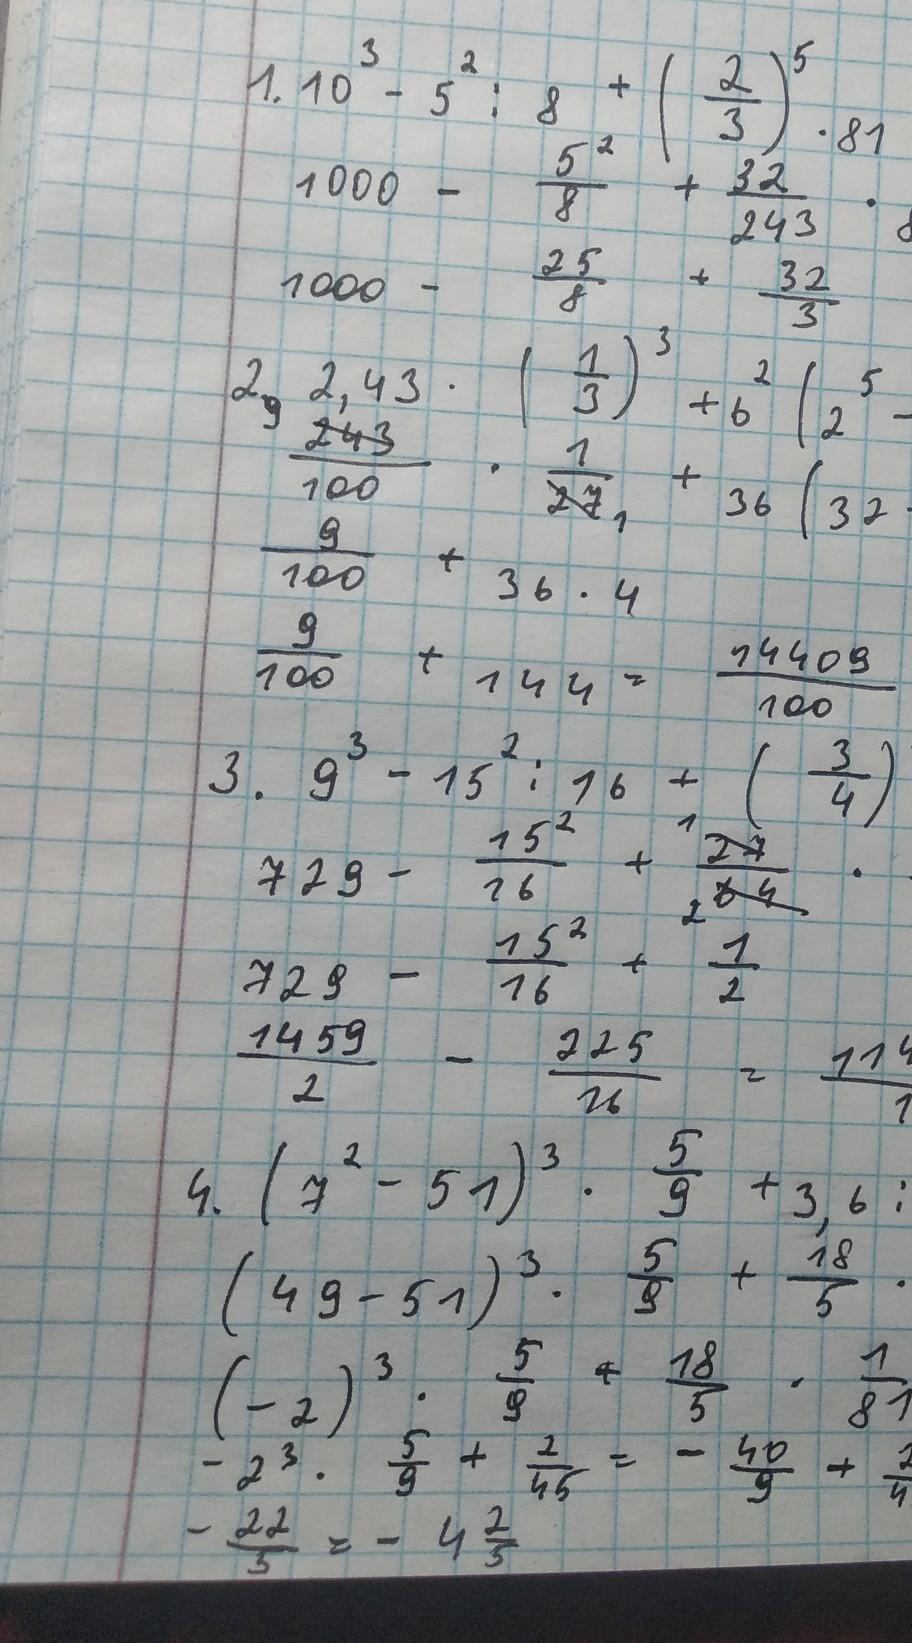 1. 10³ - 5² : 8 + (2/3)⁵ · 81
1000 - 5²/8 + 32/243 · 8
1000 - 25/8 + 32/3
2. 2,43 · (1/3)³ + 6² (2⁵ -
9 243/100 · 1/27 1 + 36 (32 -
9/100 + 36 · 4
9/100 + 144 = 14409/100
3. 9³ - 15² : 16 + (3/4)
729 - 15²/16 + 1 27/64 2 ·
729 - 15²/16 + 1/2
1459/2 - 225/16 = 114/1
4. (7² - 51)³ · 5/9 + 3,6 :
(49 - 51)³ · 5/9 + 18/5 ·
(-2)³ · 5/9 + 18/5 · 1/81
-2³ · 5/9 + 2/45 = - 40/9 + 2/4
- 22/5 = - 4 2/5